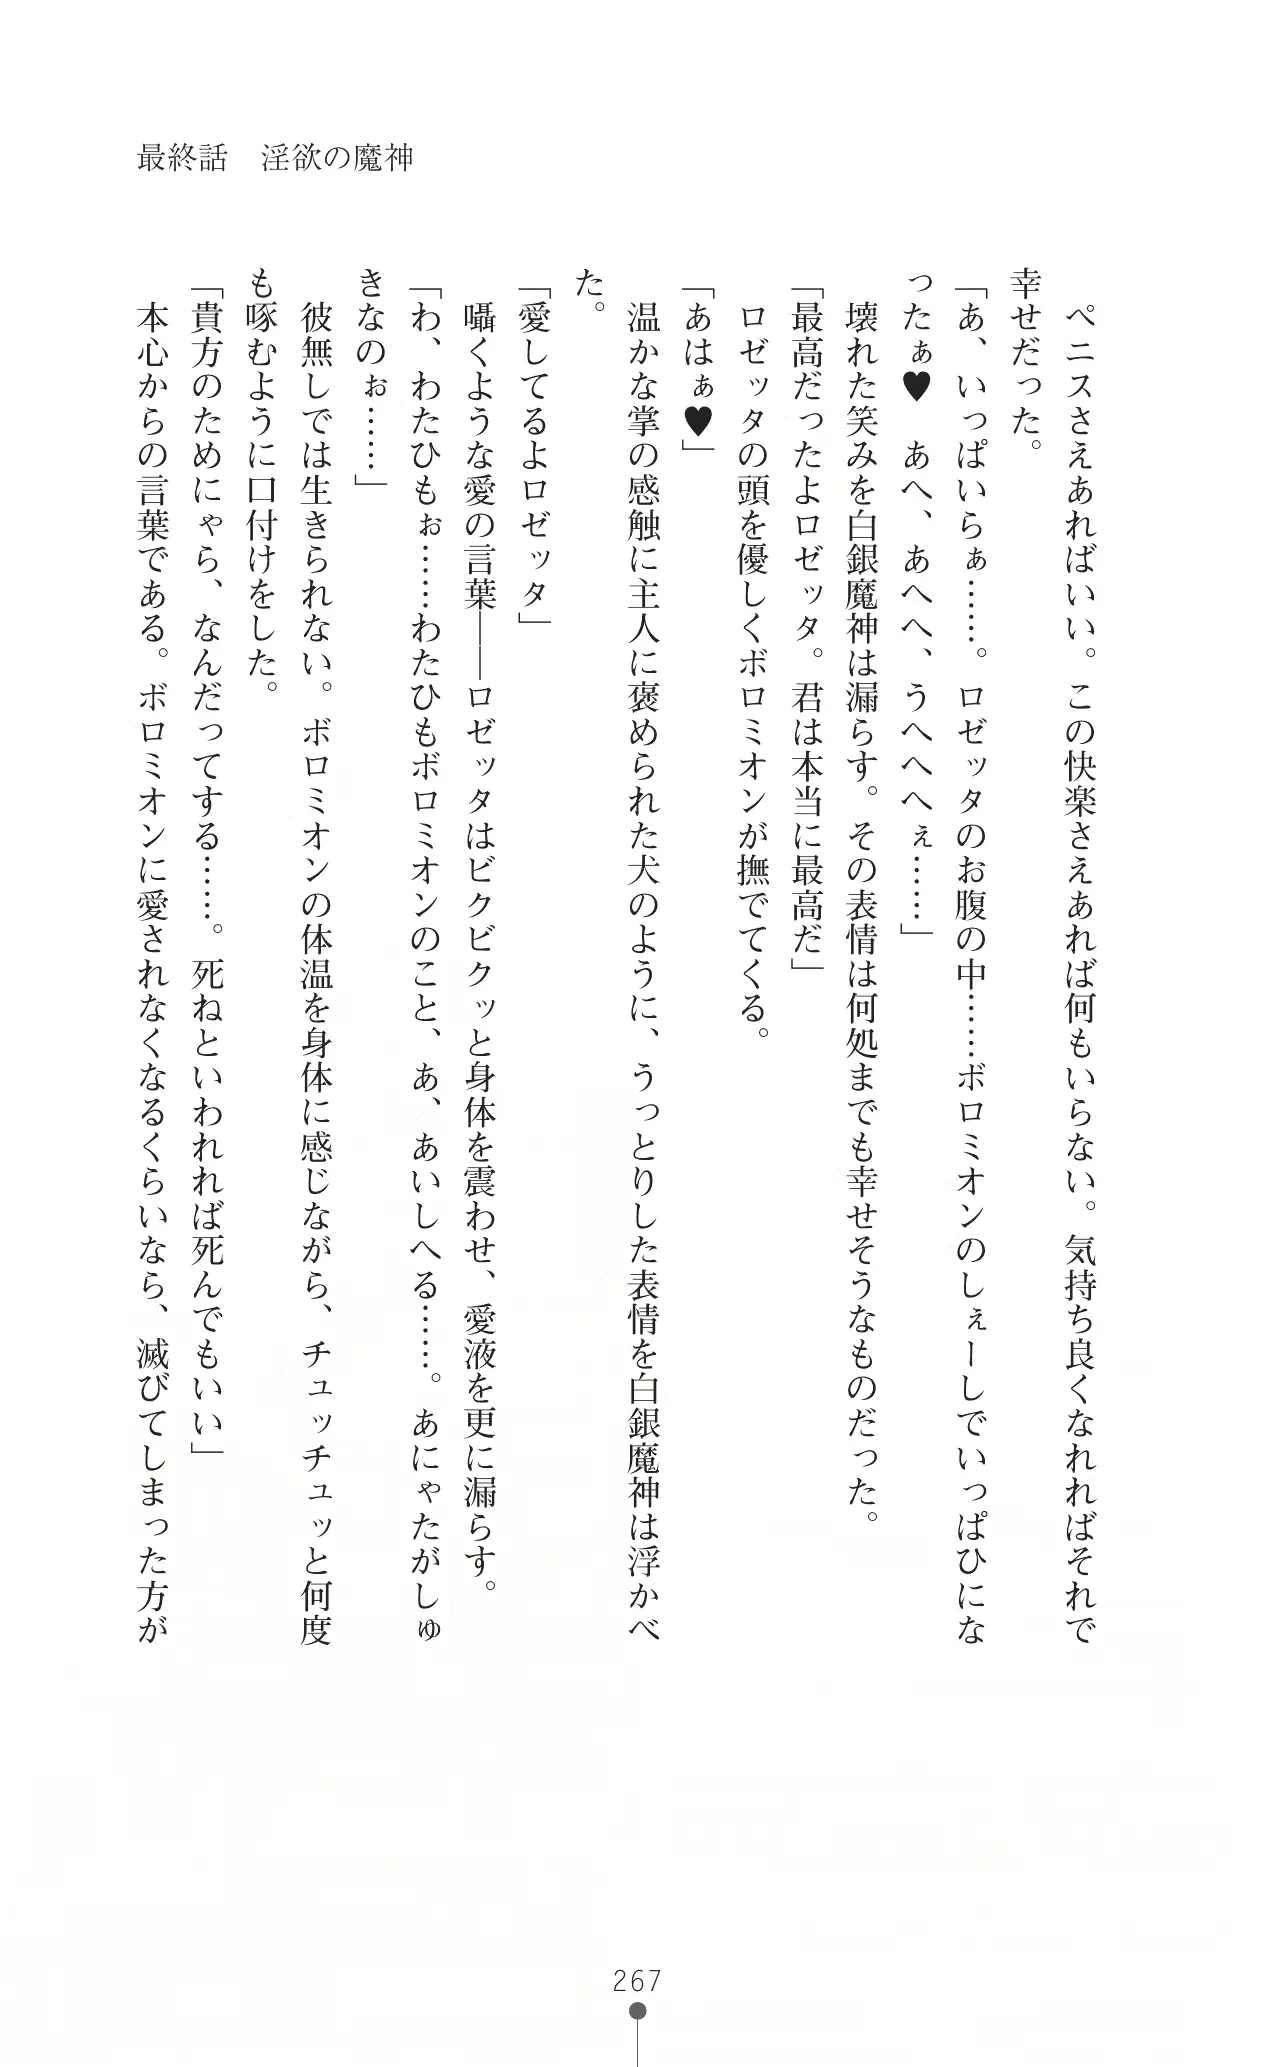 最終話　淫欲の魔神
　ペニスさえあればいい。この快楽さえあれば何もいらない。気持ち良くなれればそれで
幸せだった。
「あ、いっぱいらぁ……。ロゼッタのお腹の中……ボロミオンのしぇーしでいっぱひにな
ったぁ♥　あへ、あへへ、うへへへぇ……」
　壊れた笑みを白銀魔神は漏らす。その表情は何処までも幸せそうなものだった。
「最高だったよロゼッタ。君は本当に最高だ」
　ロゼッタの頭を優しくボロミオンが撫でてくる。
「あはぁ♥」
　温かな掌の感触に主人に褒められた犬のように、うっとりした表情を白銀魔神は浮かべ
た。
「愛してるよロゼッタ」
　囁くような愛の言葉――ロゼッタはビクビクッと身体を震わせ、愛液を更に漏らす。
「わ、わたひもぉ……わたひもボロミオンのこと、あ、あいしへる……。あにゃたがしゅ
きなのぉ……」
　彼無しでは生きられない。ボロミオンの体温を身体に感じながら、チュッチュッと何度
も啄むように口付けをした。
「貴方のためにゃら、なんだってする……。死ねといわれれば死んでもいい」
　本心からの言葉である。ボロミオンに愛されなくなるくらいなら、滅びてしまった方が
267